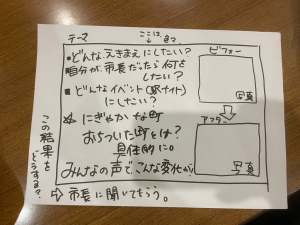 テーマ
ここは色々
・どんなえきまえにしたい?
・自分が市長だったら何を
したい?
・どんなイベント(駅ナイト)
にしたい?
☆にぎやかな町
おちついた町とは?
具体的に。
みんなの声で、こんな変化が!
ビフォー
写真
アフター
写真
この結果をどうする?
⇨市長に聞いてもらう。